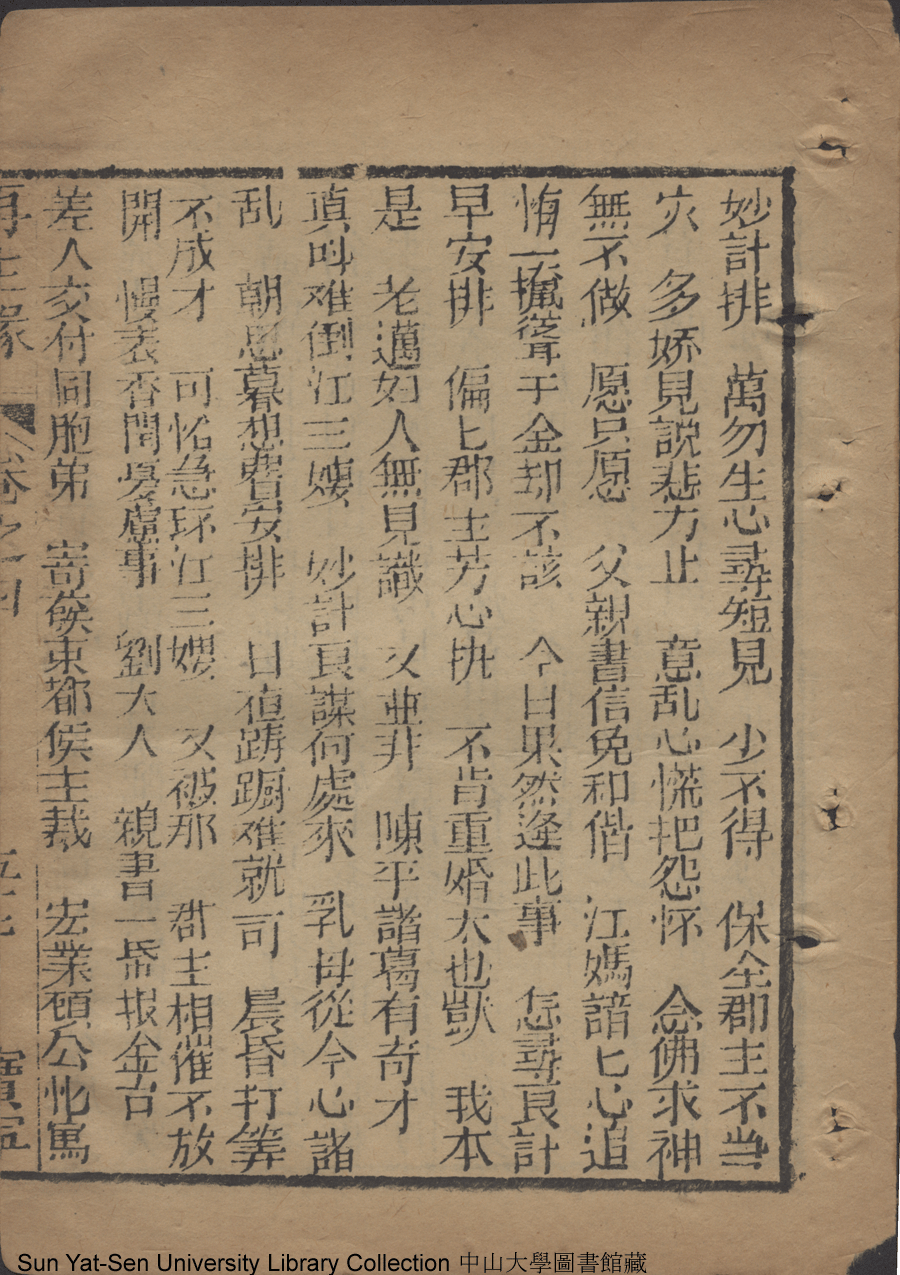 妙計排　萬勿生心尋短見　少不得　保全郡主不当
灾　多娇見説悲方止　意乱心慌把怨怀　念佛求神
無不做　愿只愿　父親書信免和偕　江媽諳匕心追
悔　一擸聳千金却不該　今日果然逢此事　怎尋良計
早安排　偏匕郡主芳心執　不肯重婚太也獃　我本
是　老邁妇人無見識　又亜非　陳平諸葛有奇才
真叫难倒江三嫂　妙計良謀何處來　乳母從今心諸
乱　朝思暮想費安排　日夜躊躕难就司　晨昏打筭
不成才　可怜急坏江三嫂　又被那　郡主相催不放
開　慢表香閨憂慮事　劉大人　親書一帋报金台
差人交付同胞弟　寄葰東都侯主裁　宏業顧公他篤
再生緣　卷之四　五十七　寶寧
Sun Yat-Sen University Library Collection 中山大學圖書館藏